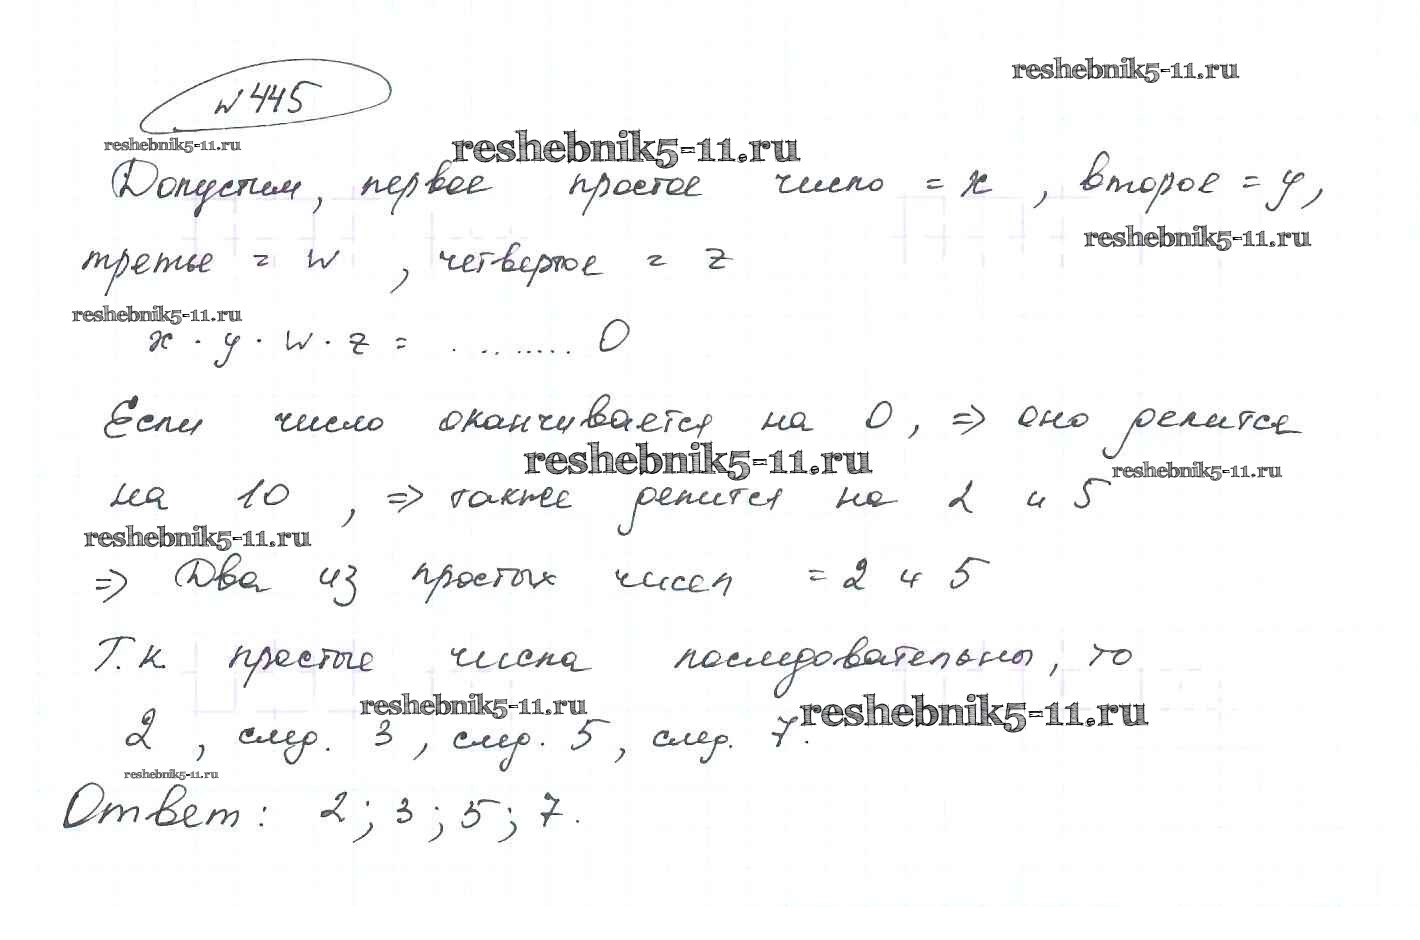 reshebnik5-11.ru
№ 445
reshebnik5-11.ru
reshebnik5-11.ru
Допустим, первое простое число = x, второе = y,
reshebnik5-11.ru
третье = w, четвертое = z
reshebnik5-11.ru
x · y · w · z = ......... 0
Если число оканчивается на 0, => оно делится
reshebnik5-11.ru
reshebnik5-11.ru
на 10, => также делится на 2 и 5
reshebnik5-11.ru
=> Два из простых чисел = 2 и 5
Т.к простые числа последовательны, то
reshebnik5-11.ru
reshebnik5-11.ru
2, след. 3, след. 5, след. 7.
reshebnik5-11.ru
Ответ: 2; 3; 5; 7.